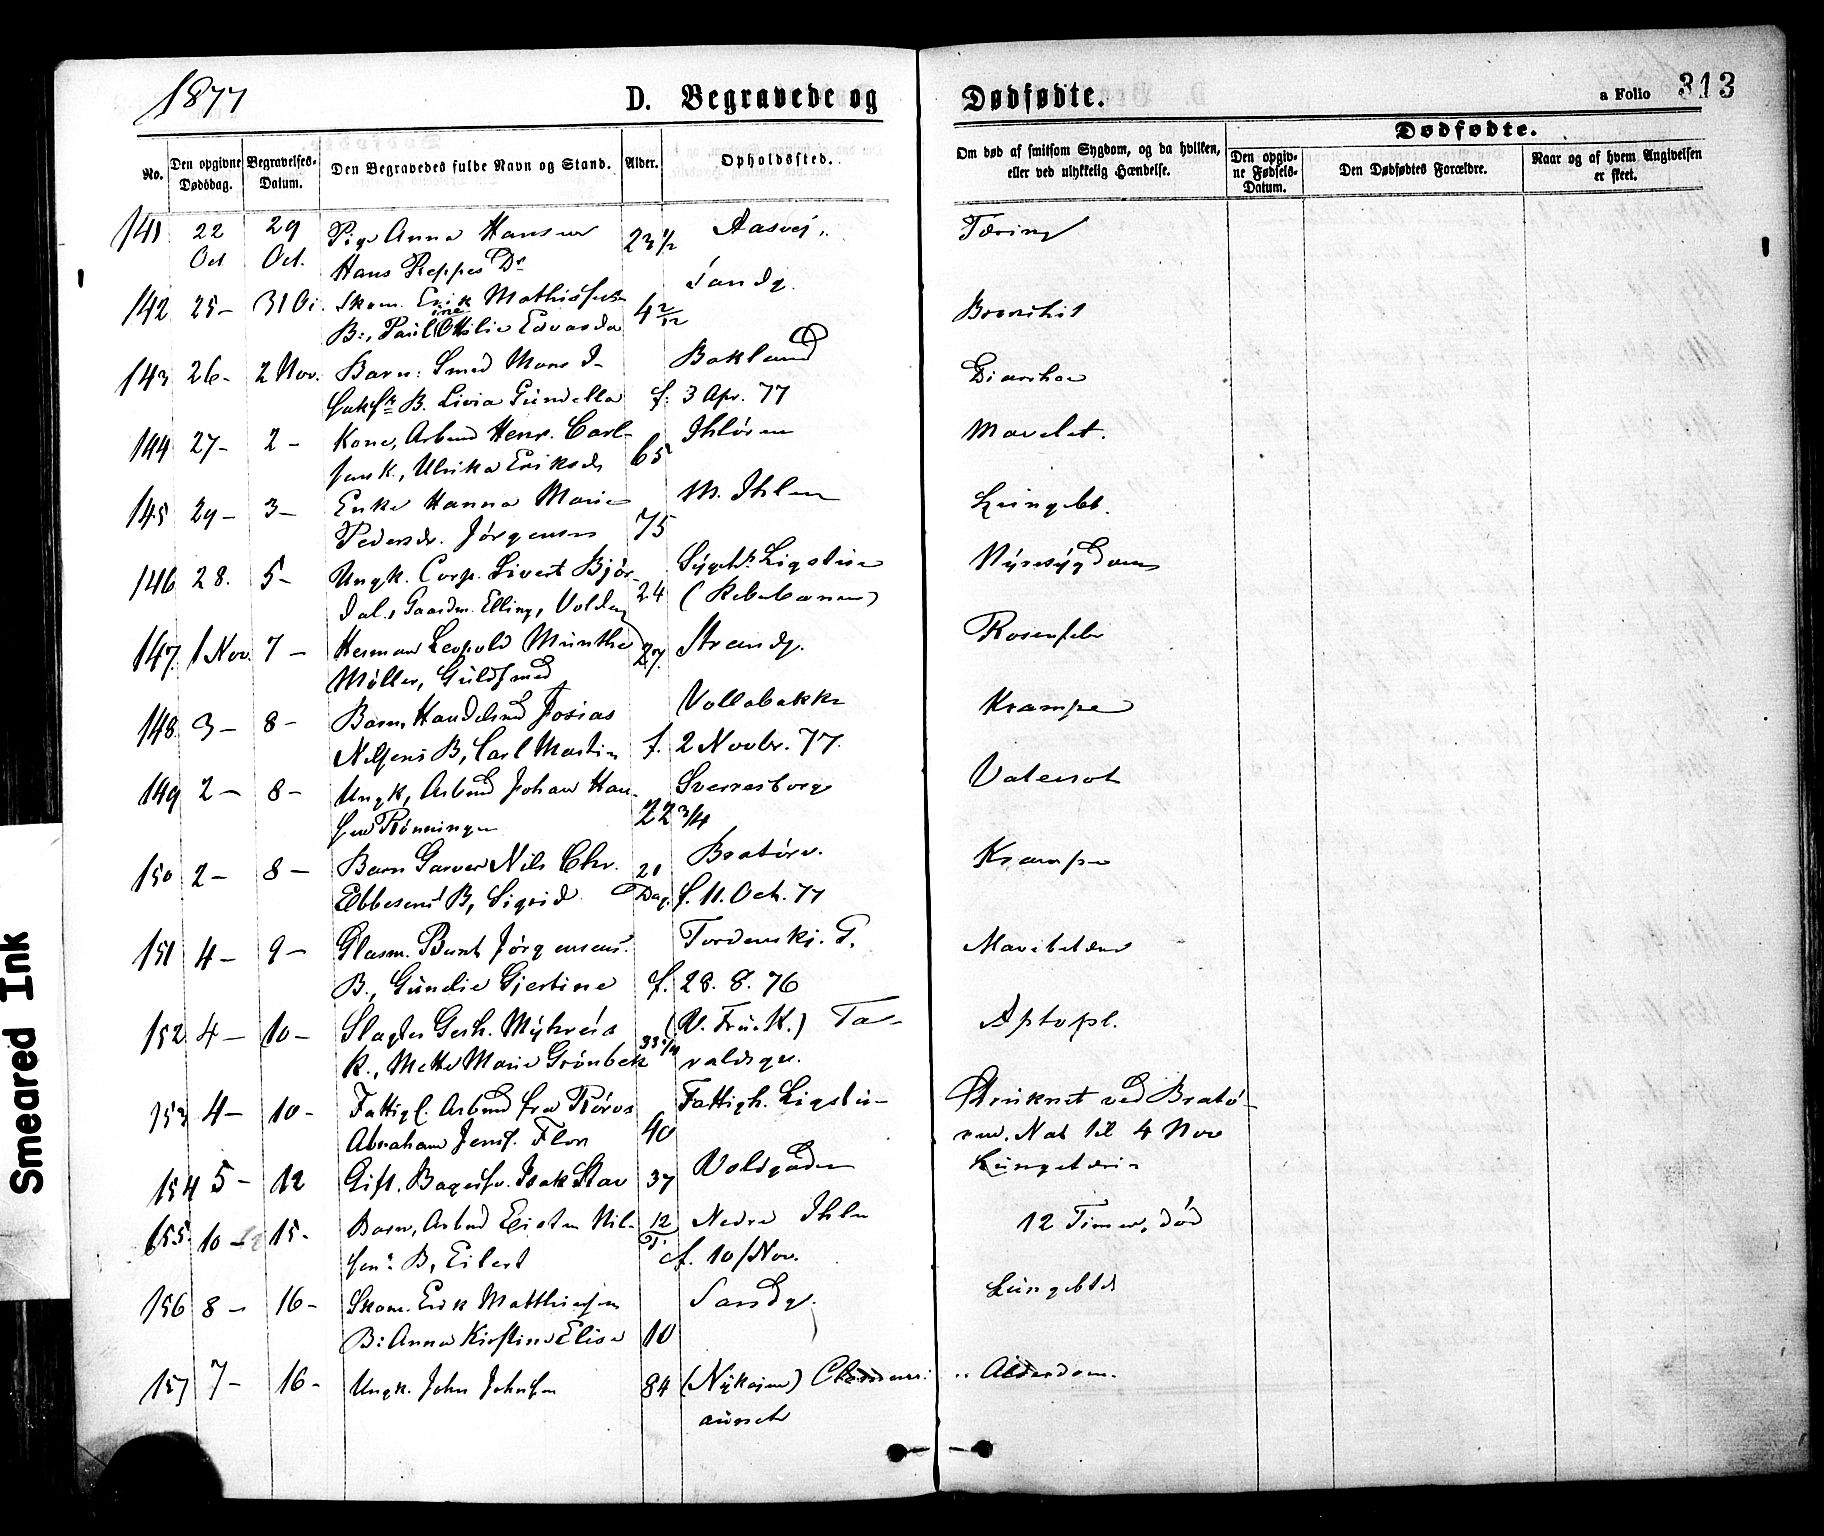 1877
D. Begravede og Dødfødte.
a Folio 313
No.
Den opgivne Dødsdag.
Begravelses-Datum.
Den Begravedes fulde Navn og Stand.
Alder.
Opholdssted.
Om død af smitsom Sygdom, og da hvilken, eller ved ulykkelig Hændelse.
Dødfødte.
Den opgivne Fødsels-Datum.
Den Dødfødtes Forældre.
Naar og af hvem Angivelsen er skeet.
141 22 Oct 29 Oct. Pige Anna Hansen 23 1/2 Aasvej. Tæring
Hans Reppes Dr
142 25 - 31 O. Skom. Erik Mathissens 4 2/12 Sandg. Bronchit
B:, Pauline Ottilie Edvarda
143 26 - 2 Nov. Barn: Smed Mons I- Bakland Diarrhoe
B. Livia Gundella f: 3 Apr. 77
144 27 - 2 - Kone, Arbmd Henr. Carl- 65 Ihløren Mavelet.
sens K., Ulrika Eriksdr
145 29 - 3 - Enke Hanna Marie 75 Ihlen Lungebt.
Pedersdr. Jørgensen
146 28. 5 - Ungk. Corp. Sivert Bjør- 24 Sygeh. Ligstue Nyresygdom
dal, Gaardm. Elling, Volden
147 1 Nov. 7 - Herman Leopold Munthe 27. Strandg. Rosenfeber
Møller, Guldsmed
148 3 - 8 - Barn, Handelsmd Josias Vollabakke Krampe
Nilsens B, Carl Martin f. 2 Novbr. 77.
149 2 - 8 - Ungk, Arbmd Johan Han- 22 3/4 Sverresborg Vatersot
sen Rønningen
150 2 - 8 - Barn Garver Nils Chr. 21 Dag. Bratørv. Krampe
Ebbesens B, Sigrid f. 11. Oct. 77
151 4 - 9 - Glasm. Bernt Jørgensens. Tordenskj. G. Mavebetæn
B., Gundie Gjertine f. 28. 8. 76
152 4 - 10 - Slagter Gerh. Myhre's (V. Frue K.) To- Apopl.
K., Mette Marie Grønbek valdsgr.
153 4 - 10 - Fattigl. Arbmd fra Røros 40 Fattigh. Ligstue Druknet ved Bratø-
Abraham Jens. Flor ren. Nat til 4 Nov
154 5 - 12 Gift. Bagersv. Isak Stav 37 Voldgaden Lungetæring
155. 10 - 15 - Barn, Arbmd Eisten Nil- 12 T. Nedre Ihle 12 Timer, død
sens B, Eilert f. 10/Nov.
156 8 - 16 - Skom. Erik Matthiessen Sandg. Lungebtd
B: Anna Kirstine Elise 10
157 7 - 16 - Ungk. John Johnsen 84 (Nykajen) Alderdom.
Smeared Ink